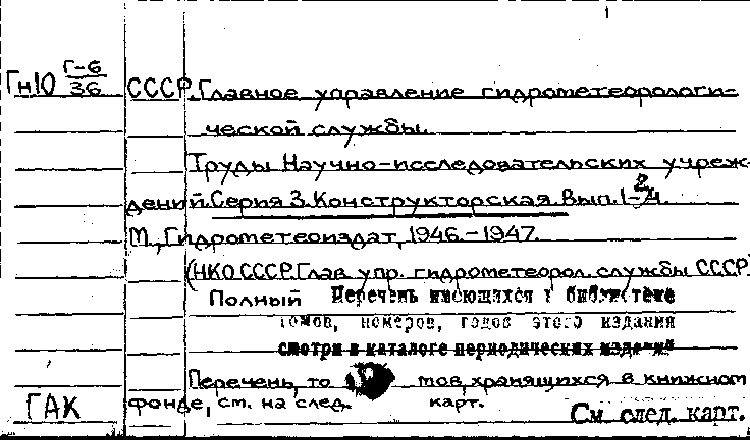 Гн10 Г-6/36 СССР. Главное управление гидрометеорологи-
ческой службы.
Труды Научно-исследовательских учреж-
дений. Серия 3. Конструкторская. Вып. 1-2
М., Гидрометеоиздат, 1946.-1947.
(НКО СССР. Глав. упр. гидрометеорол. службы СССР)
Полный Перечень имеющихся в библиотеке
томов, номеров, годов этого издания
смотри в каталоге периодических изданий
Перечень, то мов, хранящихся в книжном
фонде, см. на след. карт.
ГАК См. след. карт.